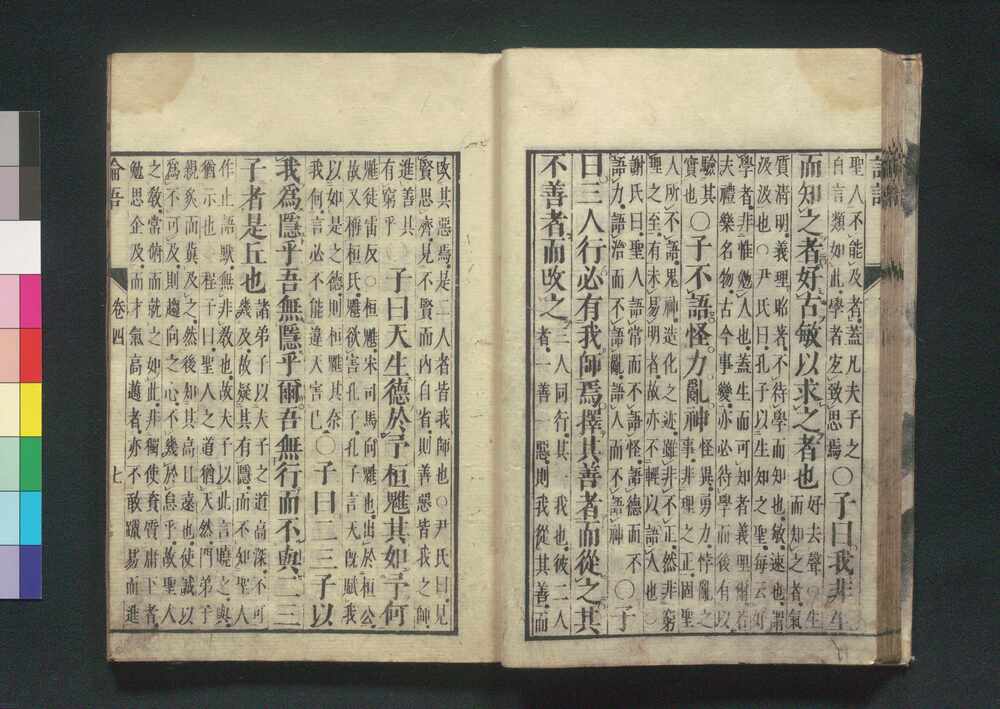 論語
聖人不能及者蓋凡夫子之
自言類如此學者宜致思焉
○子曰我非生
而知之者好古敏以求之者也
好去聲○生
而知之者氣
質清明義理昭著不待學而知也敏速也謂
汲汲也○尹氏曰孔子以生知之聖每云好
學者非惟勉人也蓋生而可知者義理爾若
夫禮樂名物古今事變亦必待學而後有以
驗其
實也
○子不語怪力亂神
怪異勇力悖亂之
事非理之正固聖
人所不語鬼神造化之迹雖非不正然非窮
理之至有未易明者故亦不輕以語人也○
謝氏曰聖人語常而不語怪語德而不
語力語治而不語亂語人而不語神
○子
曰三人行必有我師焉擇其善者而從之其
不善者而改之
三人同行其一我也彼二人
者一善一惡則我從其善而
改其惡焉是二人者皆我師也○尹氏曰見
賢思齊見不賢而內自省則善惡皆我之師
進善其
有窮乎
子曰天生德於予桓魋其如予何
魋徒雷反○桓魋宋司馬向魋也出於桓公
故又稱桓氏魋欲害孔子孔子言天既賦我
以如是之德則桓魋其奈
我何言必不能違天害己
○子曰二三子以
我為隱乎吾無隱乎爾吾無行而不與二三
子者是丘也
諸弟子以夫子之道高深不可
幾及故疑其有隱而不知聖人
作止語默無非教也故夫子以此言曉之與
猶示也○程子曰聖人之道猶天然門弟子
親炙而冀及之然後知其高且遠也使誠以
為不可及則趨向之心不幾於怠乎故聖人
之教常俯而就之如此非獨使資質庸下者
勉思企及而才氣高邁者亦不敢躐易而進
論語 卷四 七